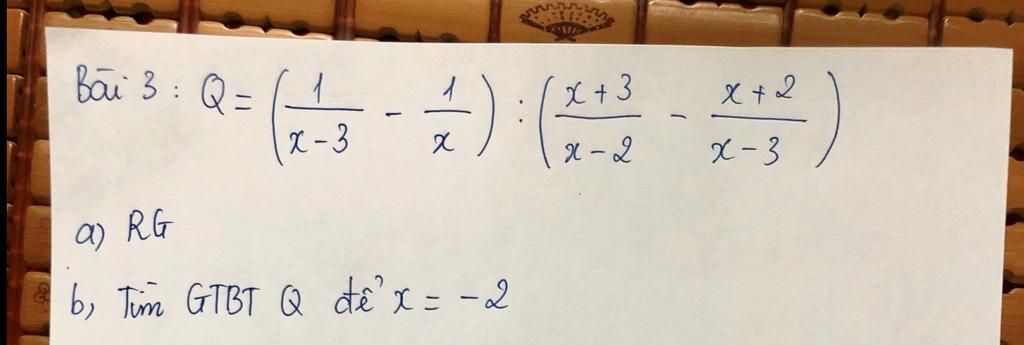 Bài 3 : Q = ( 1/(x-3) - 1/x ) : ( (x+3)/(x-2) - (x+2)/(x-3) )
a) RG
b, Tìm GTBT Q để x = -2